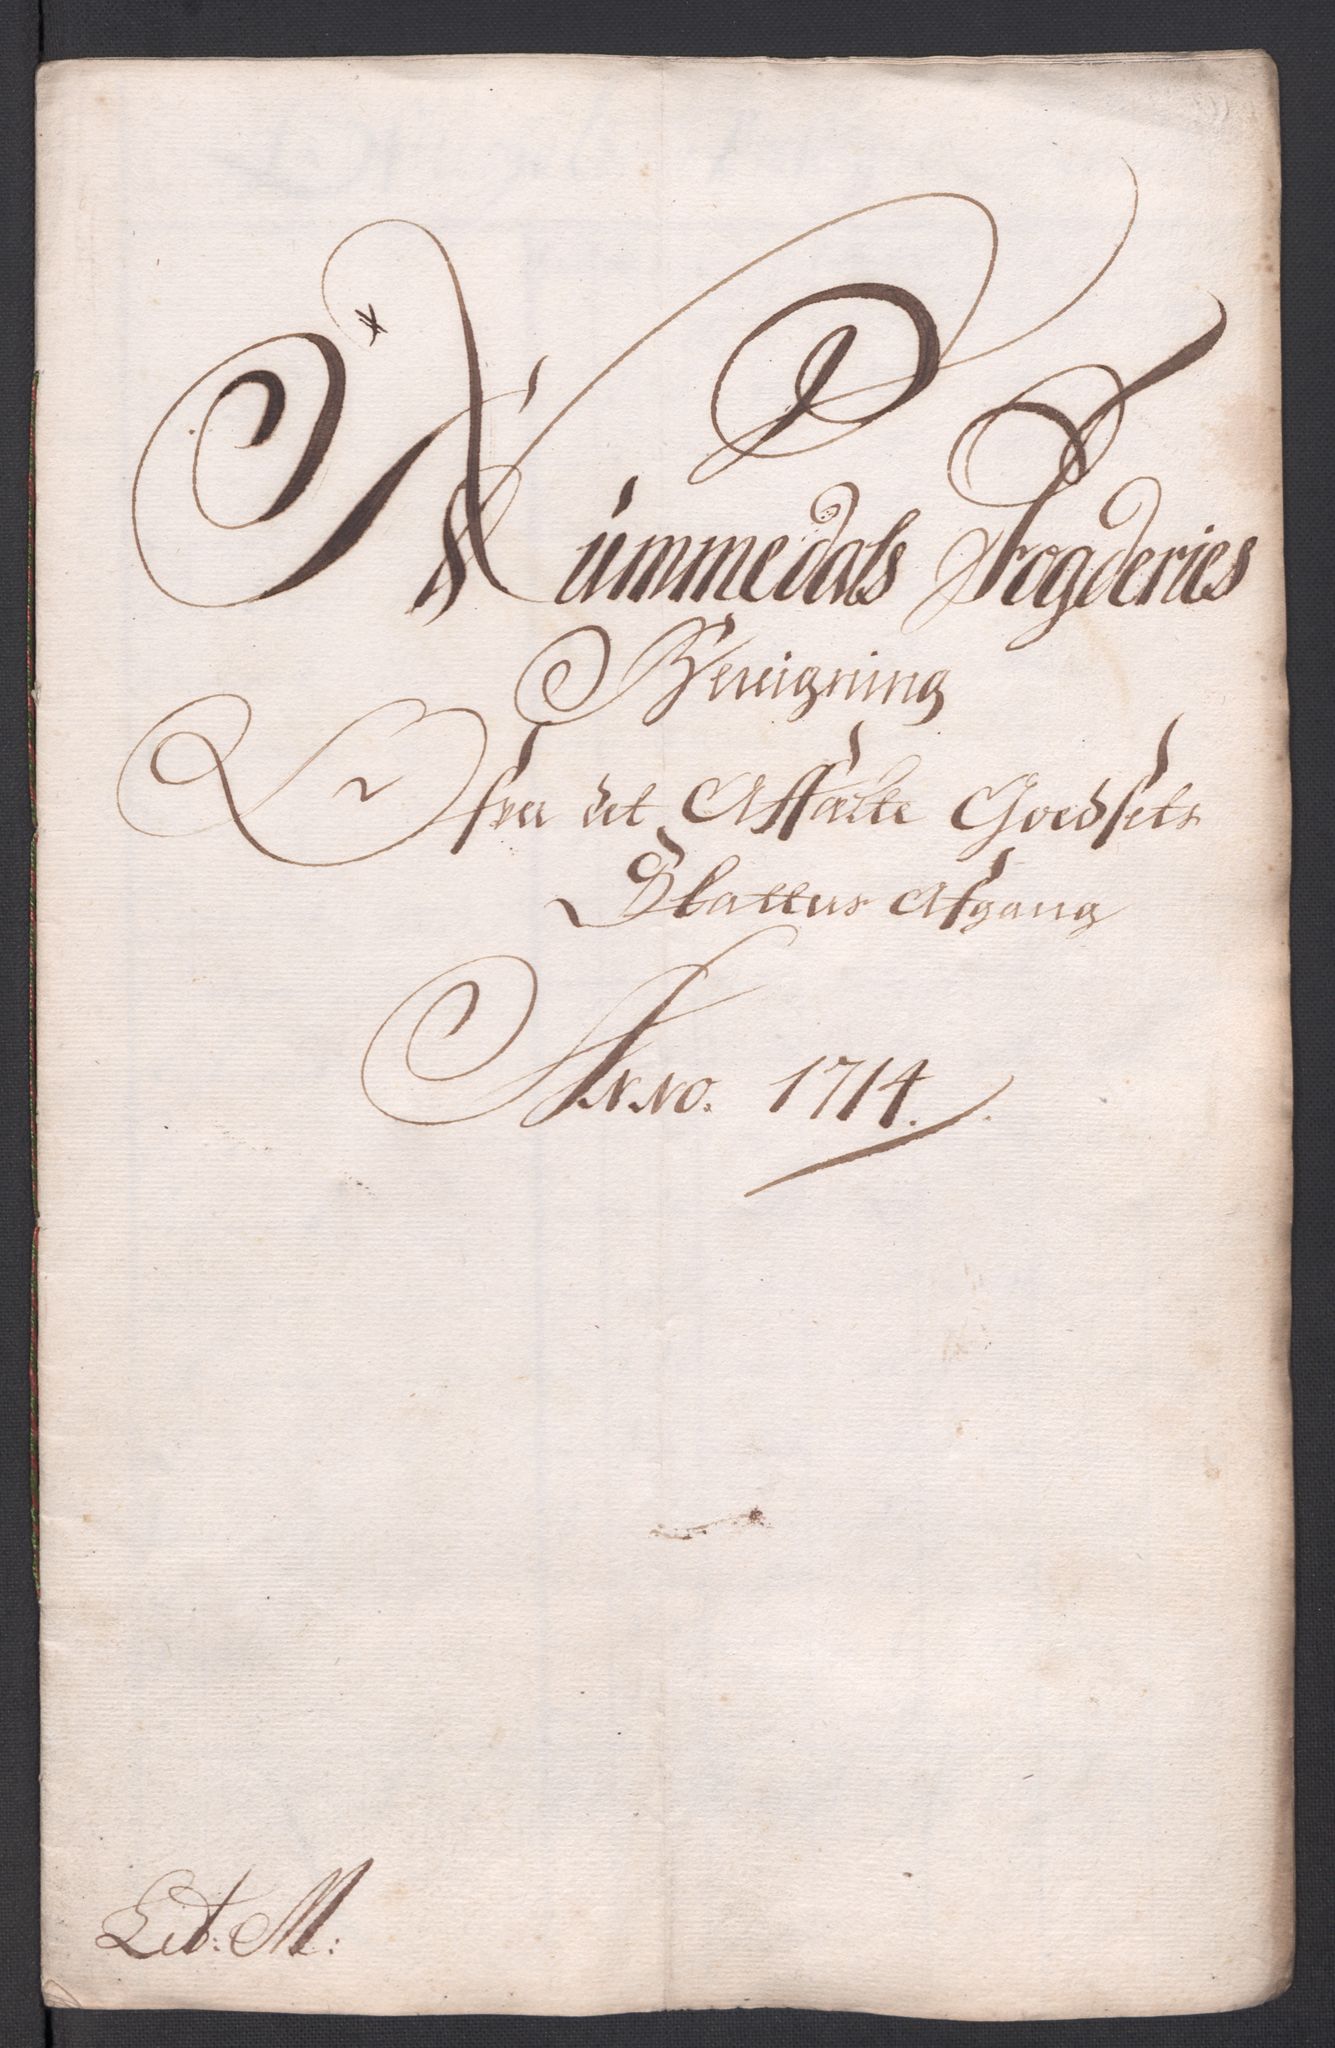 Nummedals Fogderies
Beregning
Ofver det Affældte Goedsets
Skatters Afgang
Anno. 1714.
Lit: M: